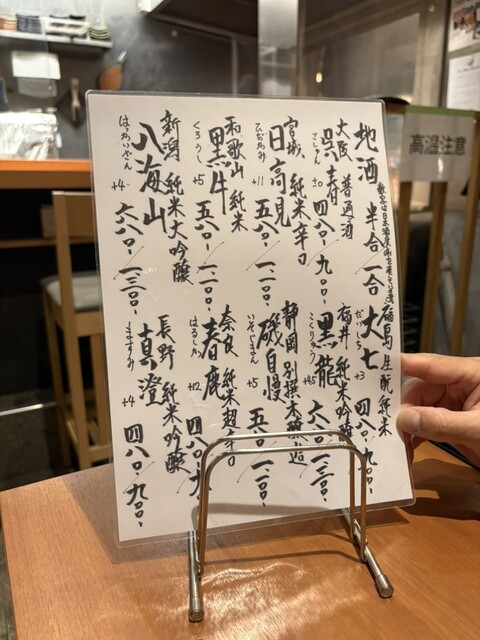 地酒 半合/一合
大阪 普通酒
呉春 ±0
ごしゅん
四八〇/九〇〇-
宮城 純米辛口
日高見 +11
ひたかみ
五八〇/一一〇〇-
和歌山 純米
黒牛 +5
くろうし
五八〇/一一〇〇-
新潟 純米大吟醸
八海山 +4
はっかいさん
六八〇/一三〇〇-
福島 生酛純米
大七 +3
だいしち
四八〇/九〇〇-
福井 純米吟醸
黒龍
こくりゅう
六八〇/一三〇〇-
静岡 別撰本醸造
磯自慢 +5
いそじまん
五八〇/一一〇〇-
奈良 純米超辛口
春鹿 +12
はるしか
四八〇/九
長野 純米吟醸
真澄 +4
ますすみ
四八〇/九〇〇-
高温注意